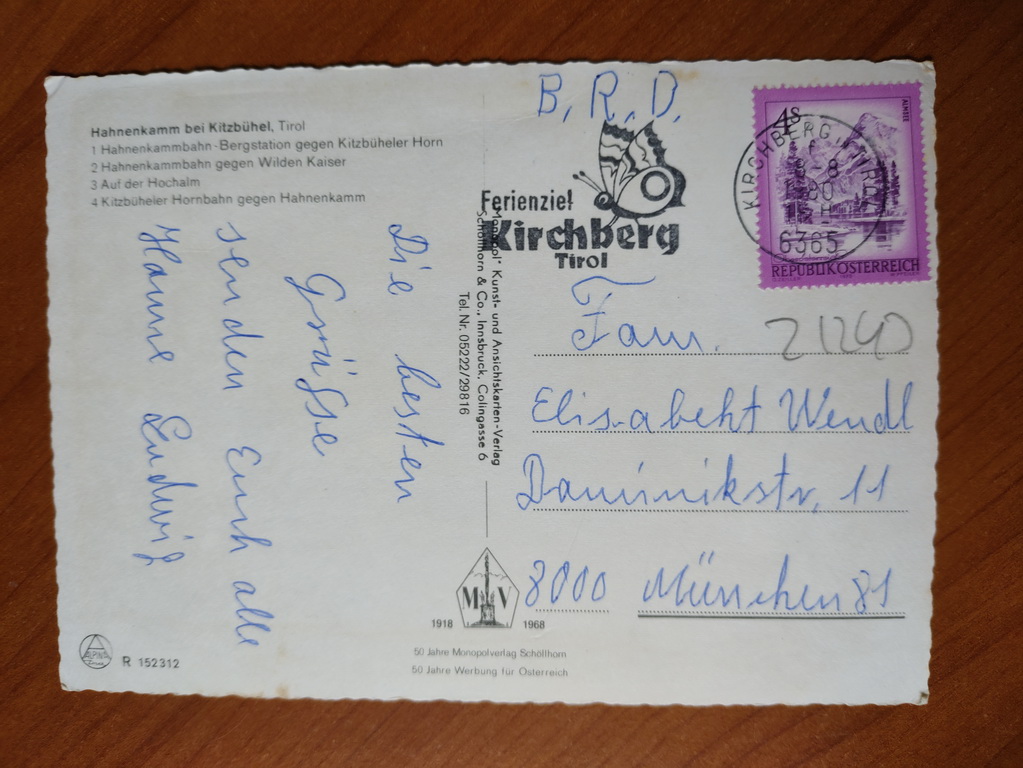 Hahnenkamm bei Kitzbühel, Tirol
1 Hahnenkammbahn-Bergstation gegen Kitzbüheler Horn
2 Hahnenkammbahn gegen Wilden Kaiser
3 Auf der Hochalm
4 Kitzbüheler Hornbahn gegen Hahnenkamm
Die besten
Grüsse
senden Euch alle
Hanne Ludwig
"Monopol" Kunst- und Ansichtskarten-Verlag
Schöllhorn & Co., Innsbruck, Colingasse 6
Tel. Nr. 05222/29816
B.R.D.
Ferienziel
Kirchberg
Tirol
4S
ALMSEE
REPUBLIK ÖSTERREICH
KIRCHBERG TIROL
80
6365
Fam.
21240
Elisabeht Wendl
Daminikstr. 11
8000 München 81
MV
1918 1968
50 Jahre Monopolverlag Schöllhorn
50 Jahre Werbung für Österreich
ALPINA
R 152312